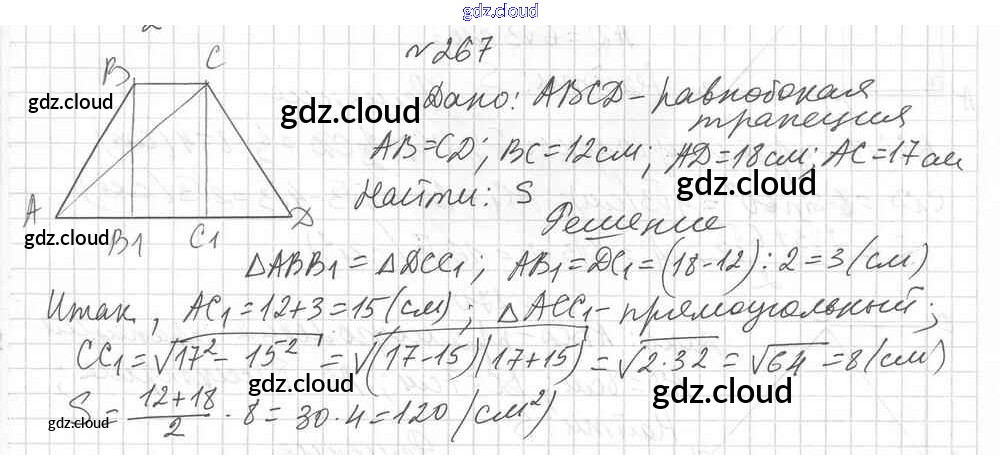 gdz.cloud
№267
B C
gdz.cloud
gdz.cloud
Дано: ABCD - равнобокая
трапеция
AB=CD; BC=12см; AD=18см; AC=17см
gdz.cloud
Найти: S
A D
gdz.cloud
B1 C1
Решение
△ABB1 = △DCC1; AB1=DC1=(18-12):2=3(см)
Итак, AC1=12+3=15(см); △ACC1-прямоугольный;
CC1=√17²-15² = √(17-15)(17+15) = √2·32 = √64 = 8(см)
gdz.cloud
gdz.cloud
S = 12+18/2 · 8 = 30·4 = 120 (см²)
gdz.cloud